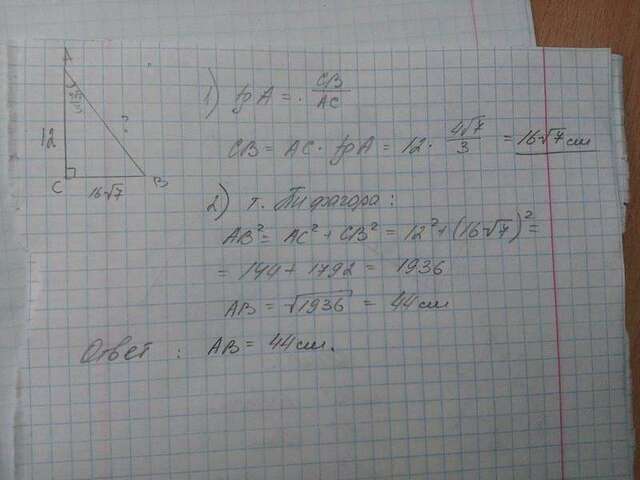 A
4√7/3
12
?
C
B
16√7
1) tg A = CB/AC
CB = AC · tg A = 12 · 4√7/3 = 16√7 см
2) т. Пифагора :
AB² = AC² + CB² = 12² + (16√7)² =
= 144 + 1792 = 1936
AB = √1936 = 44 см
Ответ : AB = 44 см.